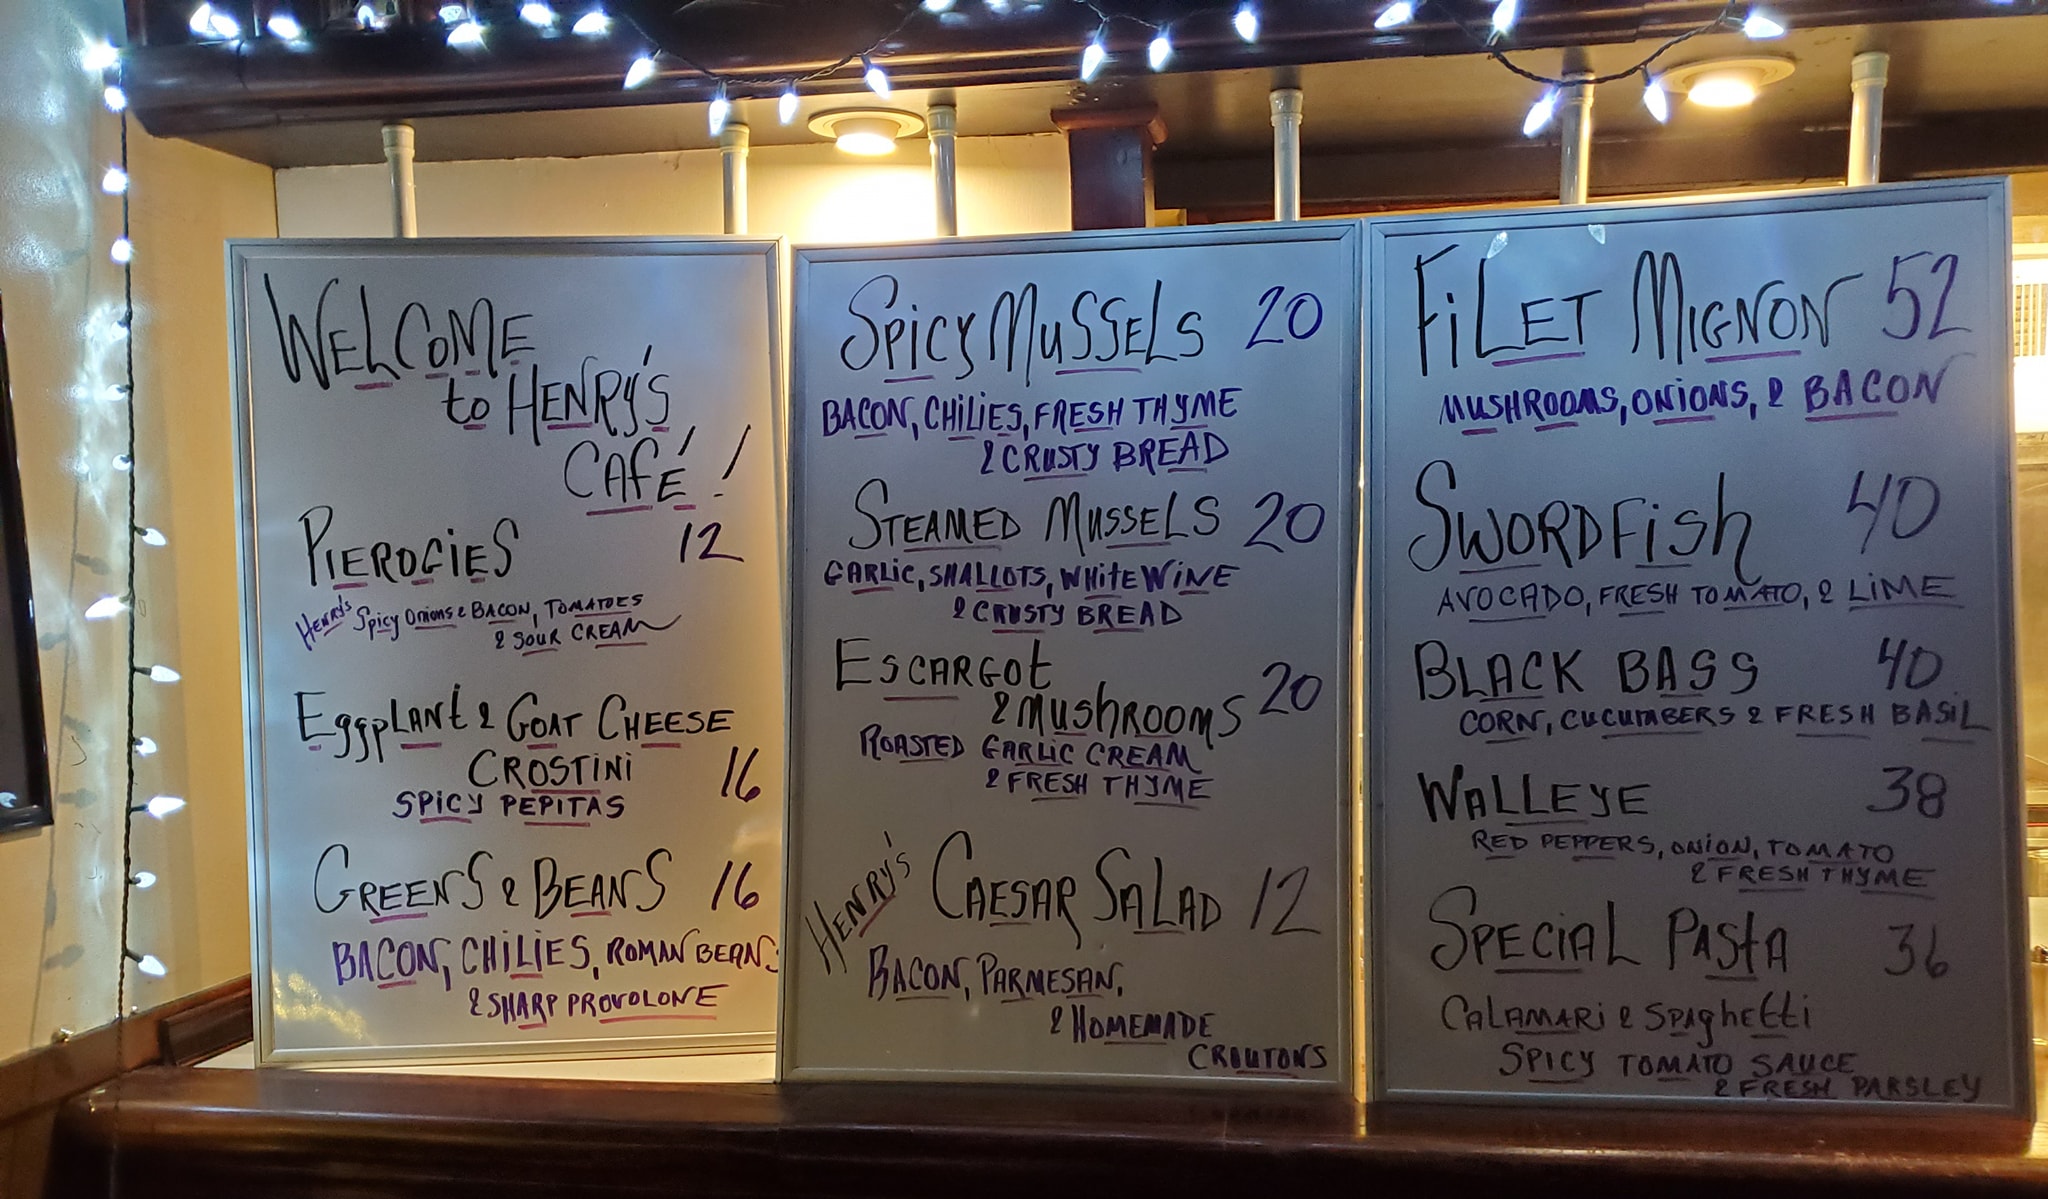 WELCOME
to HENRY'S
CAFÉ!
PIEROGIES 12
HENRY'S SPICY ONIONS & BACON, TOMATOES
& SOUR CREAM
EGGPLANT & GOAT CHEESE
CROSTINI 16
SPICY PEPITAS
GREENS & BEANS 16
BACON, CHILIES, ROMAN BEANS
& SHARP PROVOLONE
SPICY MUSSELS 20
BACON, CHILIES, FRESH THYME
& CRUSTY BREAD
STEAMED MUSSELS 20
GARLIC, SHALLOTS, WHITE WINE
& CRUSTY BREAD
ESCARGOT
& MUSHROOMS 20
ROASTED GARLIC CREAM
& FRESH THYME
HENRY'S CAESAR SALAD 12
BACON, PARMESAN,
& HOMEMADE
CROUTONS
FILET MIGNON 52
MUSHROOMS, ONIONS, & BACON
SWORDFISH 40
AVOCADO, FRESH TOMATO, & LIME
BLACK BASS 40
CORN, CUCUMBERS & FRESH BASIL
WALLEYE 38
RED PEPPERS, ONION, TOMATO
& FRESH THYME
SPECIAL PASTA 36
CALAMARI & SPAGHETTI
SPICY TOMATO SAUCE
& FRESH PARSLEY